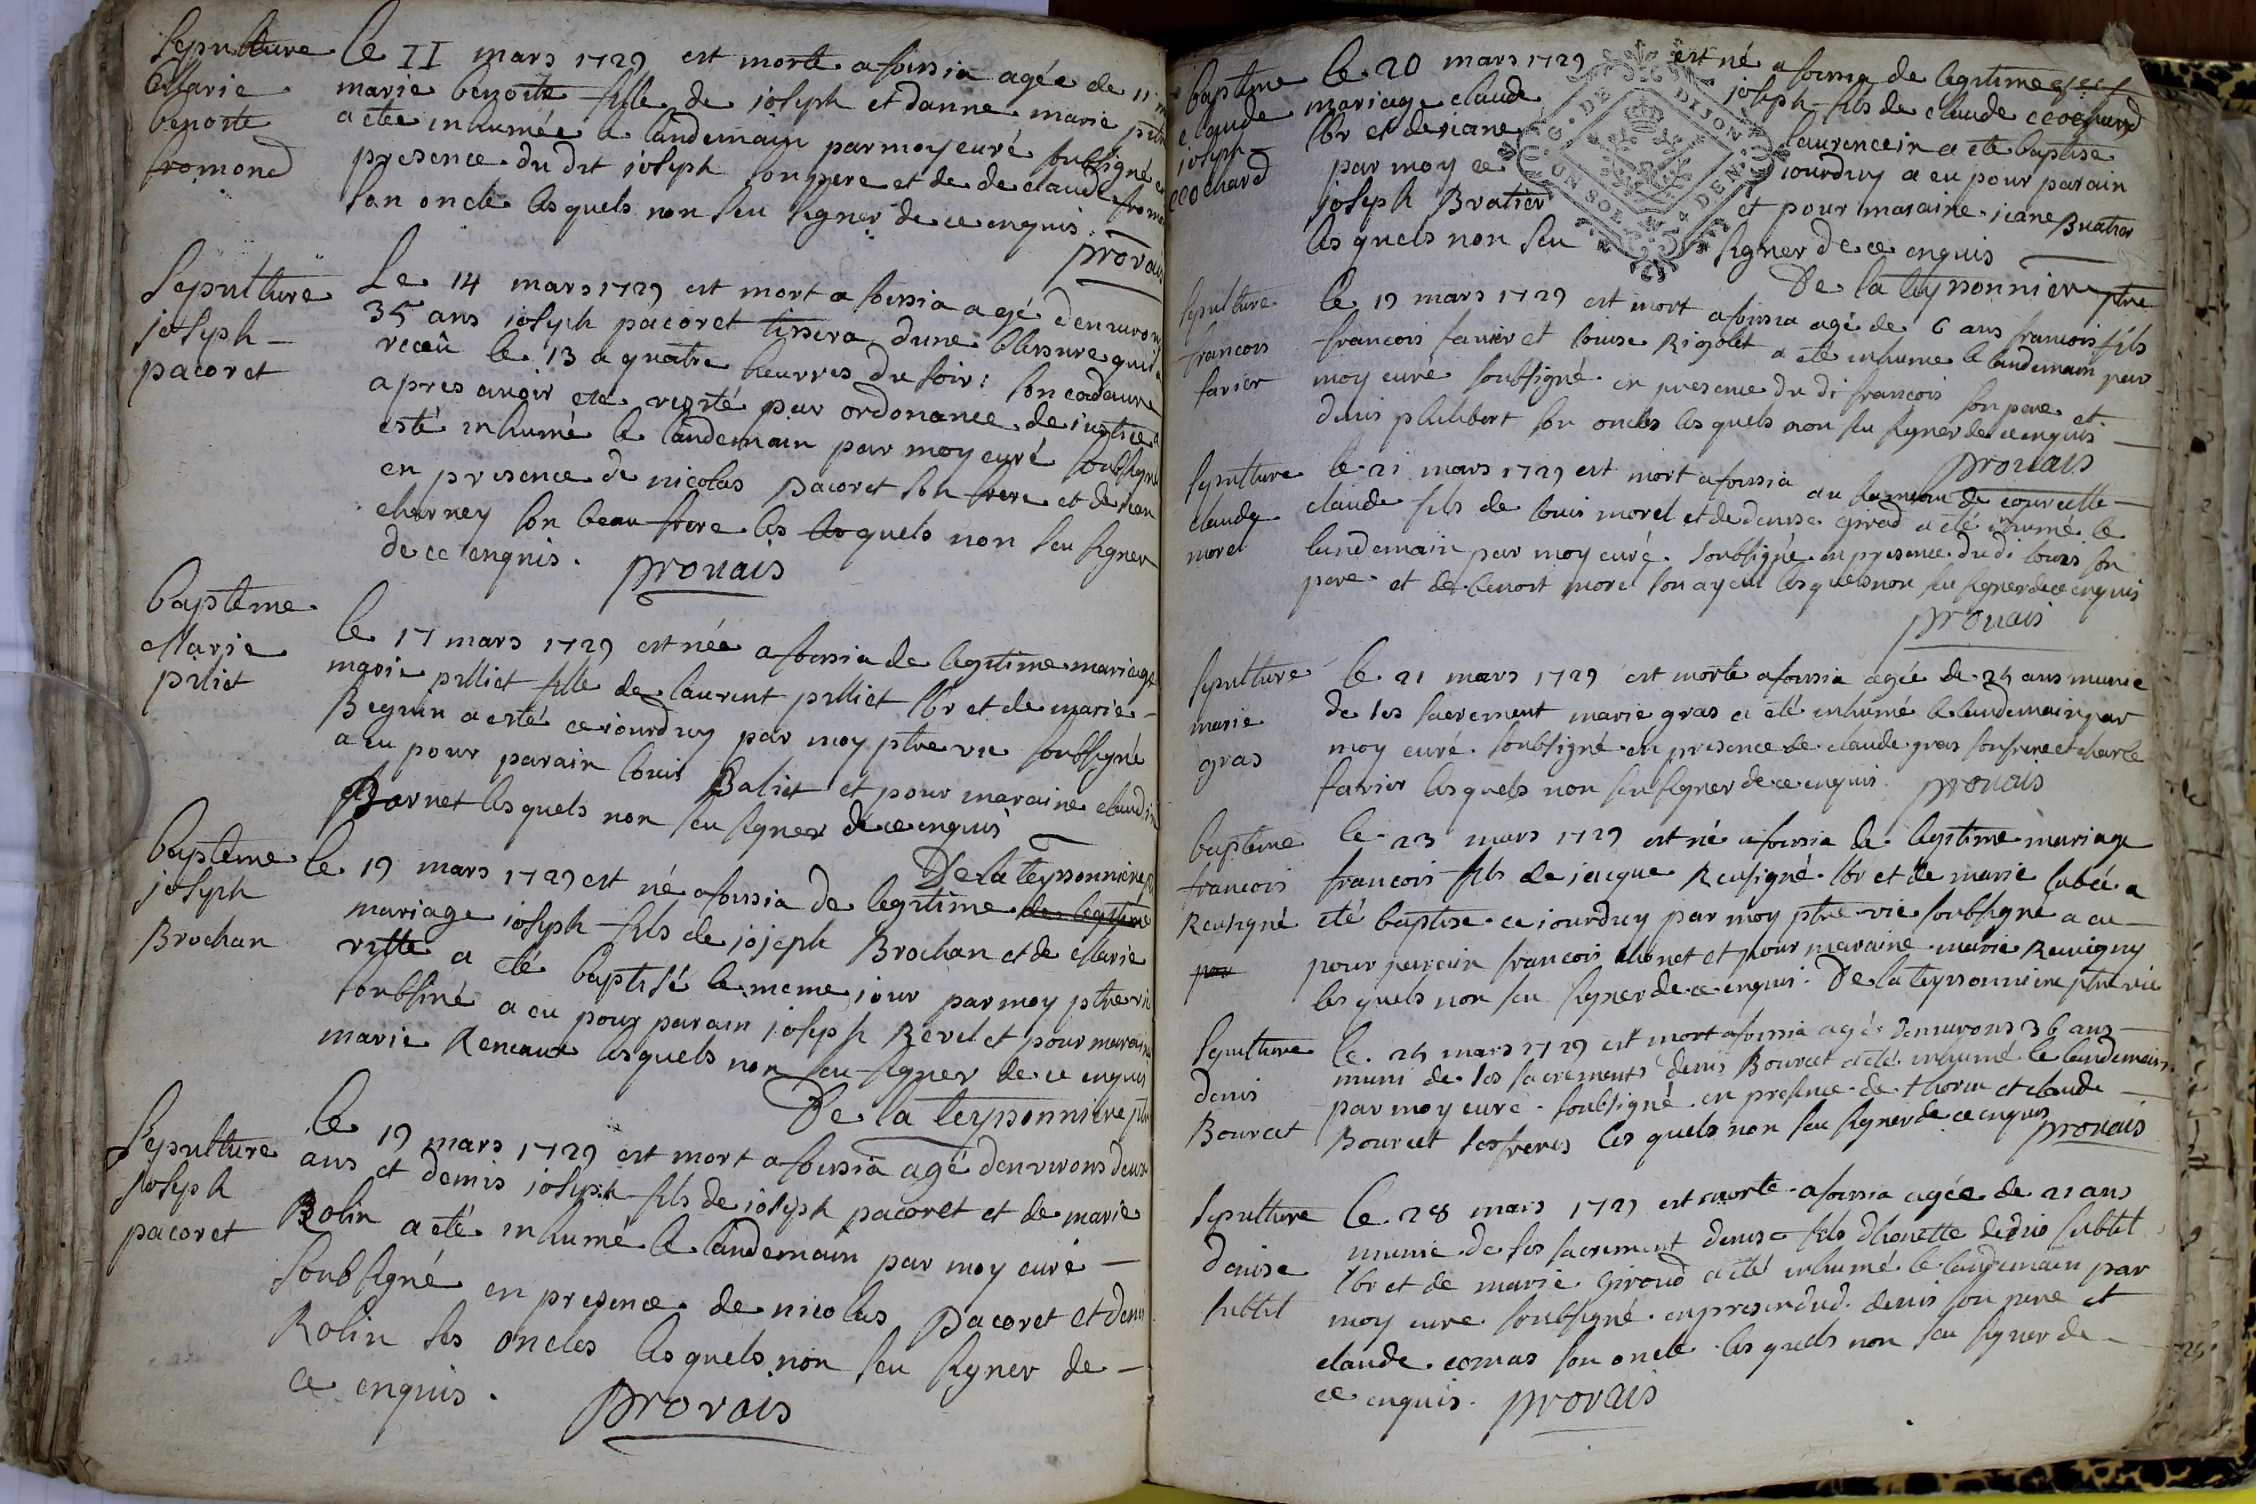 Sepulture
Marie
benoite
fromond
le II mars 1729 est morte a foissia agée de 11
marie benoite fille de joseph et danne marie
a etée inhumée le landemain par moy curé soubsigné
presence du dit joseph son pere et de de claude
son oncle les quels non seu signer de ce enquis
provais
Sepulture
joseph
pacoret
Le 14 mars 1729 est mort a foissia agé denvirons
35 ans joseph pacoret tissera dune blessure quil
receü le 13 a quatre heurres du soir : son cadavre
apres avoir ete visité par ordonance de justice a
esté inhumé le landemain par moy curé soubsigné
en presence de nicolas pacoret son frere et de jean
charney son beau frere les les quels non seu signer
de ce enquis . provais
bapteme
Marie
piliet
le 17 mars 1729 est née a foissia de legitime mariage
marie pilliet fille de laurent pilliet lbr et de marie
Beguin a esté ce jourduy par moy ptre vie soubsigné
a eu pour parain louis Baliet et pour maraine
Barnet les quels non seu signer de ce enquis
De la teyssonniere
baptême
joseph
Brochan
le 19 mars 1729 est né a foissia de legitime de legitime
mariage joseph fils de joseph Brochan et de Marie
vitte a été baptisé le meme jour par moy ptre vie
soubsiné a eu pour parain joseph Revel et pour maraine
marie Reneaux les quels non seu signer de ce enquis
De la teyssonniere ptre
Sepulture
joseph
pacoret
le 19 mars 1729 est mort a foissia agé denvirons deux
ans et demis joseph fils de joseph pacoret et de marie
Rolin a eté inhumé le landemain par moy curé
soubsigné en presence de nicolas pacoret et denis
Rolin ses oncles les quels non seu signer de
ce enquis . provais
baptême
claude
joseph
cochard
le 20 mars 1729 est né a foissia de legitime
mariage claude joseph fils de claude cochard
lbr et de jeane laurencein a ete baptise
par moy ce jourduy a eu pour parain
joseph Bratier et pour maraine jeane Buatier
les quels non seu signer de ce enquis
De la teyssonniere ptre
G. DE DIJON
ON SOL 4 DEN.
Sepulture
francois
favier
le 19 mars 1729 est mort a foissia agé de 6 ans francois fils
francois favier et louise Rigolet a eté inhume le landemain par
moy curé soubsigné en presence du di francois son pere et
denis philibert son oncles les quels non seu signer de ce enquis
provais
Sepulture
claude
morel
le 21 mars 1729 est mort a foissia au hameau de courcelle
claude fils de louis morel et de denise girod a été inhumé le
landemain par moy curé soubsigné en presence du di louis son
pere et de benoit morel son ayeul les quels non seu signer de ce enquis
provais
Sepulture
marie
gras
le 21 mars 1729 est morte a foissia agée de 24 ans munie
de ses sacrement marie gras a été inhumé le landemain par
moy curé soubsigné en presence de claude gras son frere et charle
favier les quels non seu signer de ce enquis . provais
baptême
francois
Reusigné
le 23 mars 1729 est né a foissia de legitime mariage
francois fils de jacque Reusigné lbr et de marie a
eté baptise ce jourduy par moy ptre vie soubsigné a eu
pour parain francois et pour maraine marie Reuvigny
les quels non seu signer de ce enquis . De la teyssonniere ptre vie
Sepulture
denis
Bourcet
le 24 mars 1729 est mort a foissia agé denvirons 36 ans
muni de ses sacrements denis Bourcet a été inhumé le landemain
par moy curé soubsigné en presence de et claude
Bourcet ses freres les quels non seu signer de ce enquis provais
Sepulture
denise
subtil
le 28 mars 1729 est morte a foissia agée de 21 ans
munie de ses sacrement denise fils subtil
lbr et de marie giroud a eté inhumé le landemain par
moy cure soubsigné denis son pere et
claude comas son oncle les quells non seu signer de
ce enquis . provais